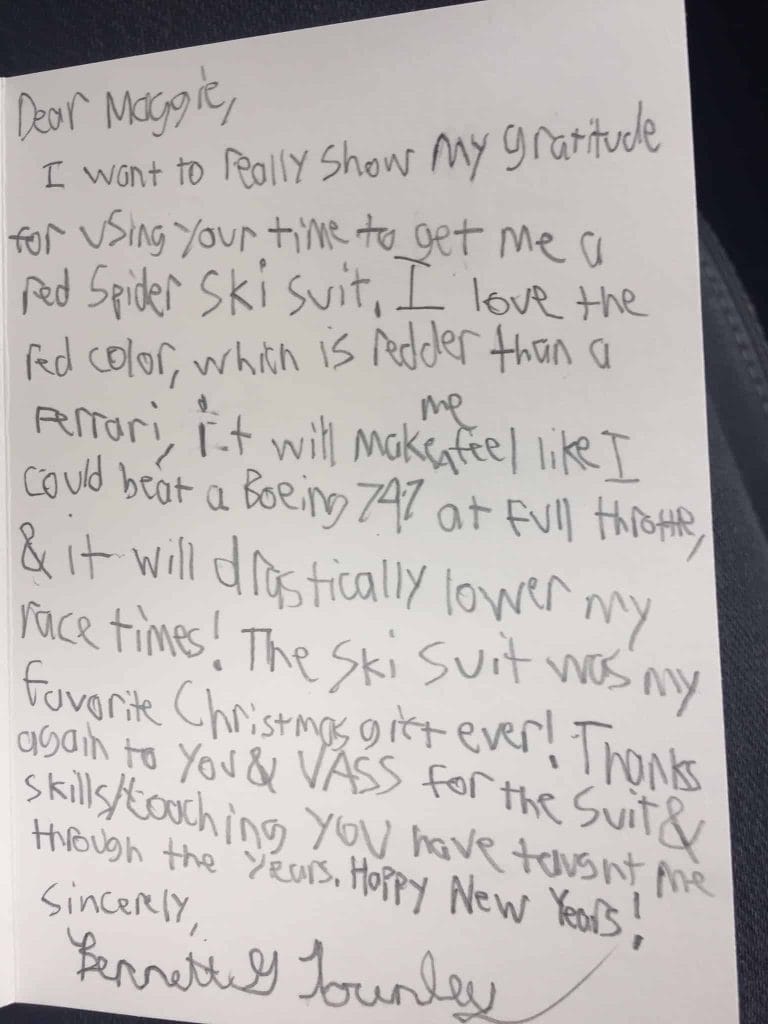 Dear Maggie,
I want to really show my gratitude
for using your time to get me a
red Spider ski suit. I love the
red color, which is redder than a
Ferrari, it will make me feel like I
could beat a Boeing 747 at full throttle,
& it will drastically lower my
race times! The ski suit was my
favorite Christmas gift ever! Thanks
again to you & VASS for the suit &
skills/teaching you have taught me
through the years. Happy New Years!
Sincerely,
Bennett G Townley